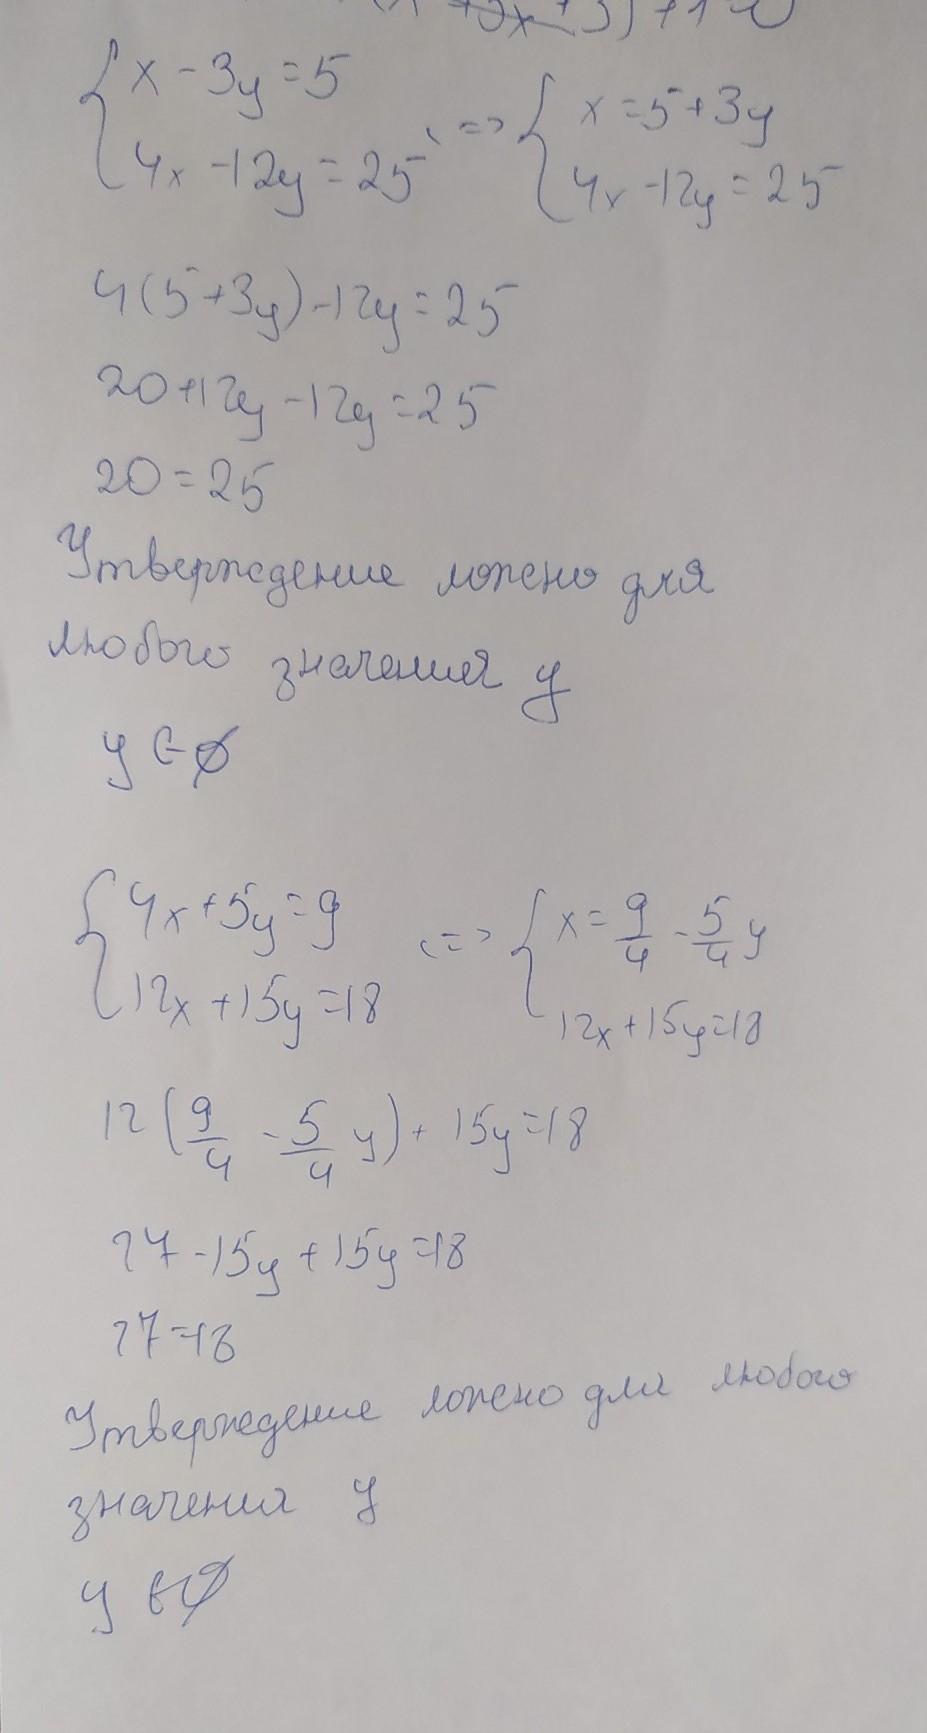 { x - 3y = 5
4x - 12y = 25 <=> { x = 5 + 3y
4x - 12y = 25
4(5+3y) - 12y = 25
20 + 12y - 12y = 25
20 = 25
Утверждение ложно для
любого значения y
y ∈ ∅
{ 4x + 5y = 9
12x + 15y = 18 <=> { x = 9/4 - 5/4 y
12x + 15y = 18
12 (9/4 - 5/4 y) + 15y = 18
27 - 15y + 15y = 18
27 = 18
Утверждение ложно для любого
значения y
y ∈ ∅